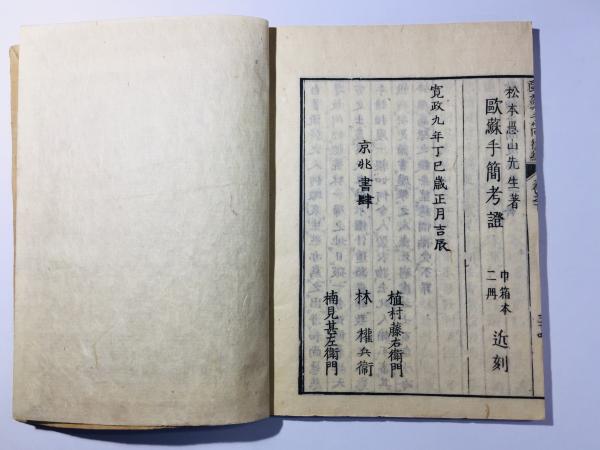 松本愚山先生著
歐蘇手簡考證
巾箱本
二冊
近刻
寛政九年丁巳歳正月吉辰
京兆書肆
植村藤右衛門
林權兵衞
楠見甚左衛門